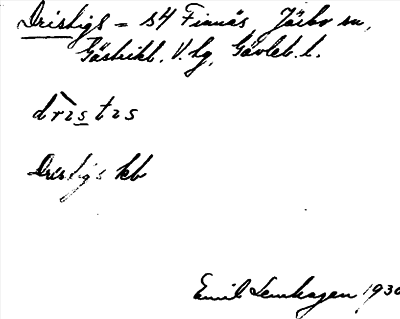 Dristigs = s4 Finnäs, Järbo sn,
Gästrikl. V. hg, Gävleb. l.
drɩstɩs
Dristigs kb
Emil Lenhagen 1930